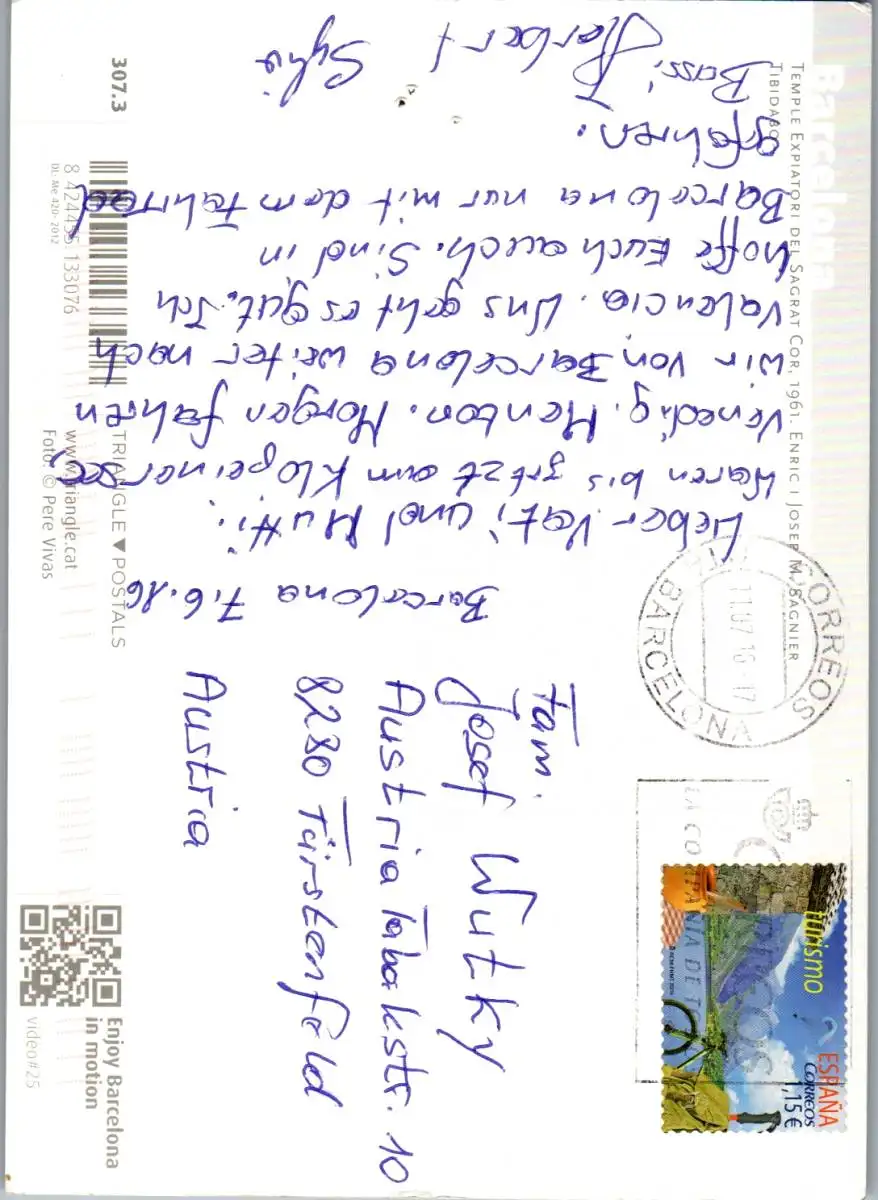 Barcelona
TEMPLE EXPIATORI DEL SAGRAT COR, 1961. ENRIC I JOSEP M. SAGNIER
TIBIDABO
Barcelona 7.6.16
Lieber Vati und Mutti.
Waren bis jetzt am Klopeinersee,
Venedig. Menton. Morgen fahren
wir von Barcelona weiter nach
Valencia. Uns geht es gut. Ich
hoffe Euch auch. Sind in
Barcelona nur mit dem Fahrrad
gefahren.
Bussi Herbert Sylvia
Fam.
Josef Wutky
Austria Tabakstr. 10
8280 Fürstenfeld
Austria
CORREOS
11.07 16
17
BARCELONA
LA COMPAÑIA DE
turismo
ESPAÑA
CORREOS
1,15 €
307.3
8 424455 133076
DL: Me 420-2012
TRIANGLE ▼ POSTALS
www.triangle.cat
Foto: © Pere Vivas
Enjoy Barcelona
in motion
video#25